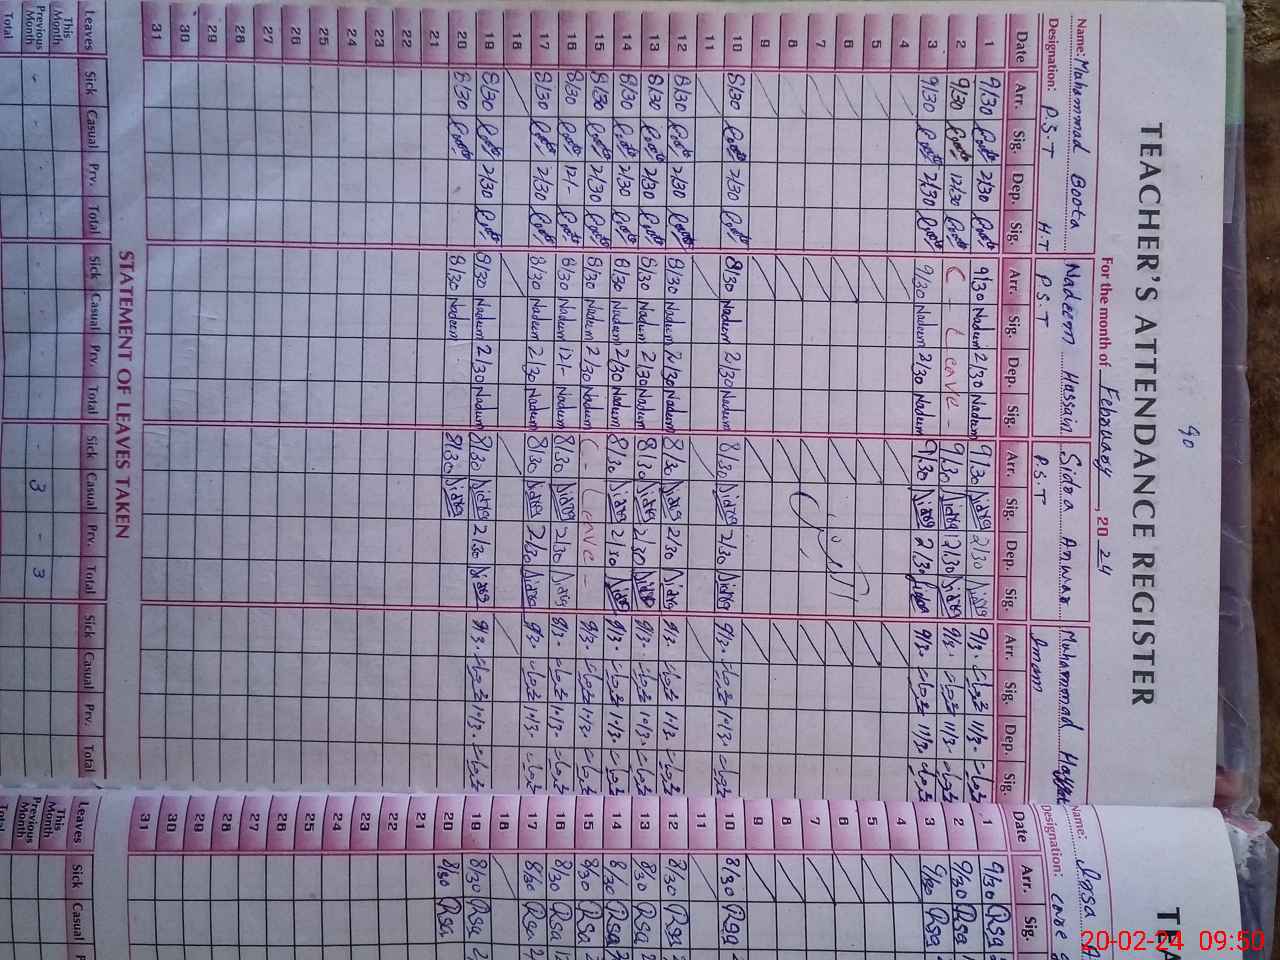 90
TEACHER'S ATTENDANCE REGISTER
For the month of February, 20 24
Name: Muhammad Boota Nadeem Hassain Sidra Anwar Muhammad
Designation: P.S.T H.T P.S.T P.S.T Imam
Date Arr. Sig. Dep. Sig. Arr. Sig. Dep. Sig. Arr. Sig. Dep. Sig. Arr. Sig. Dep. Sig.
1 9/30 Boota 2/30 Boota 9/30 Nadeem 2/30 Nadeem 9/30 Sidra 2/30 Sidra 9/3.
2 9/30 Boota 12/30 Boota C - Leave - 9/30 Sidra 12/30 Sidra 9/3.
3 9/30 Boota 2/30 Boota 9/30 Nadeem 2/30 Nadeem 9/30 Sidra 2/30 Sidra 9/3.
4
5
6
7
8
9
10 8/30 Boota 2/30 Boota 8/30 Nadeem 2/30 Nadeem 8/30 Sidra 2/30 Sidra 9/3.
11
12 8/30 Boota 2/30 Boota 8/30 Nadeem 2/30 Nadeem 8/30 Sidra 2/30 Sidra 9/3.
13 8/30 Boota 2/30 Boota 8/30 Nadeem 2/30 Nadeem 8/30 Sidra 2/30 Sidra 9/3.
14 8/30 Boota 2/30 Boota 8/30 Nadeem 2/30 Nadeem 8/30 Sidra 2/30 Sidra 9/3.
15 8/30 Boota 2/30 Boota 8/30 Nadeem 2/30 Nadeem C - Leave - 9/3.
16 8/30 Boota 12/- Boota 8/30 Nadeem 12/- Nadeem 8/30 Sidra 2/30 Sidra
17 8/30 Boota 2/30 Boota 8/30 Nadeem 2/30 Nadeem 8/30 Sidra 2/30 Sidra 9/3.
18
19 8/30 Boota 2/30 Boota 8/30 Nadeem 2/30 Nadeem 8/30 Sidra 2/30 Sidra 9/3.
20 8/30 Boota 8/30 Nadeem 8/30 Sidra
21
22
23
24
25
26
27
28
29
30
31
STATEMENT OF LEAVES TAKEN
Leaves Sick Casual Prv. Total Sick Casual Prv. Total Sick Casual Prv. Total Sick Casual Prv. Total
This Month
Previous Month - - - - 3 - 3
Total
TEA
Name:
Designation:
Date Arr. Sig.
1 9/30 Rsa
2 9/30 Rsa
3 9/30 Rsa
4
5
6
7
8
9
10 8/30 Rsa
11
12 8/30 Rsa
13 8/30 Rsa
14 8/30 Rsa
15 8/30 Rsa
16 8/30 Rsa
17 8/30 Rsa
18
19 8/30 Rsa
20 8/30 Rsa
21
22
23
24
25
26
27
28
29
30
31
Leaves Sick Casual
This Month
Previous Month
Total
20-02-24 09:50